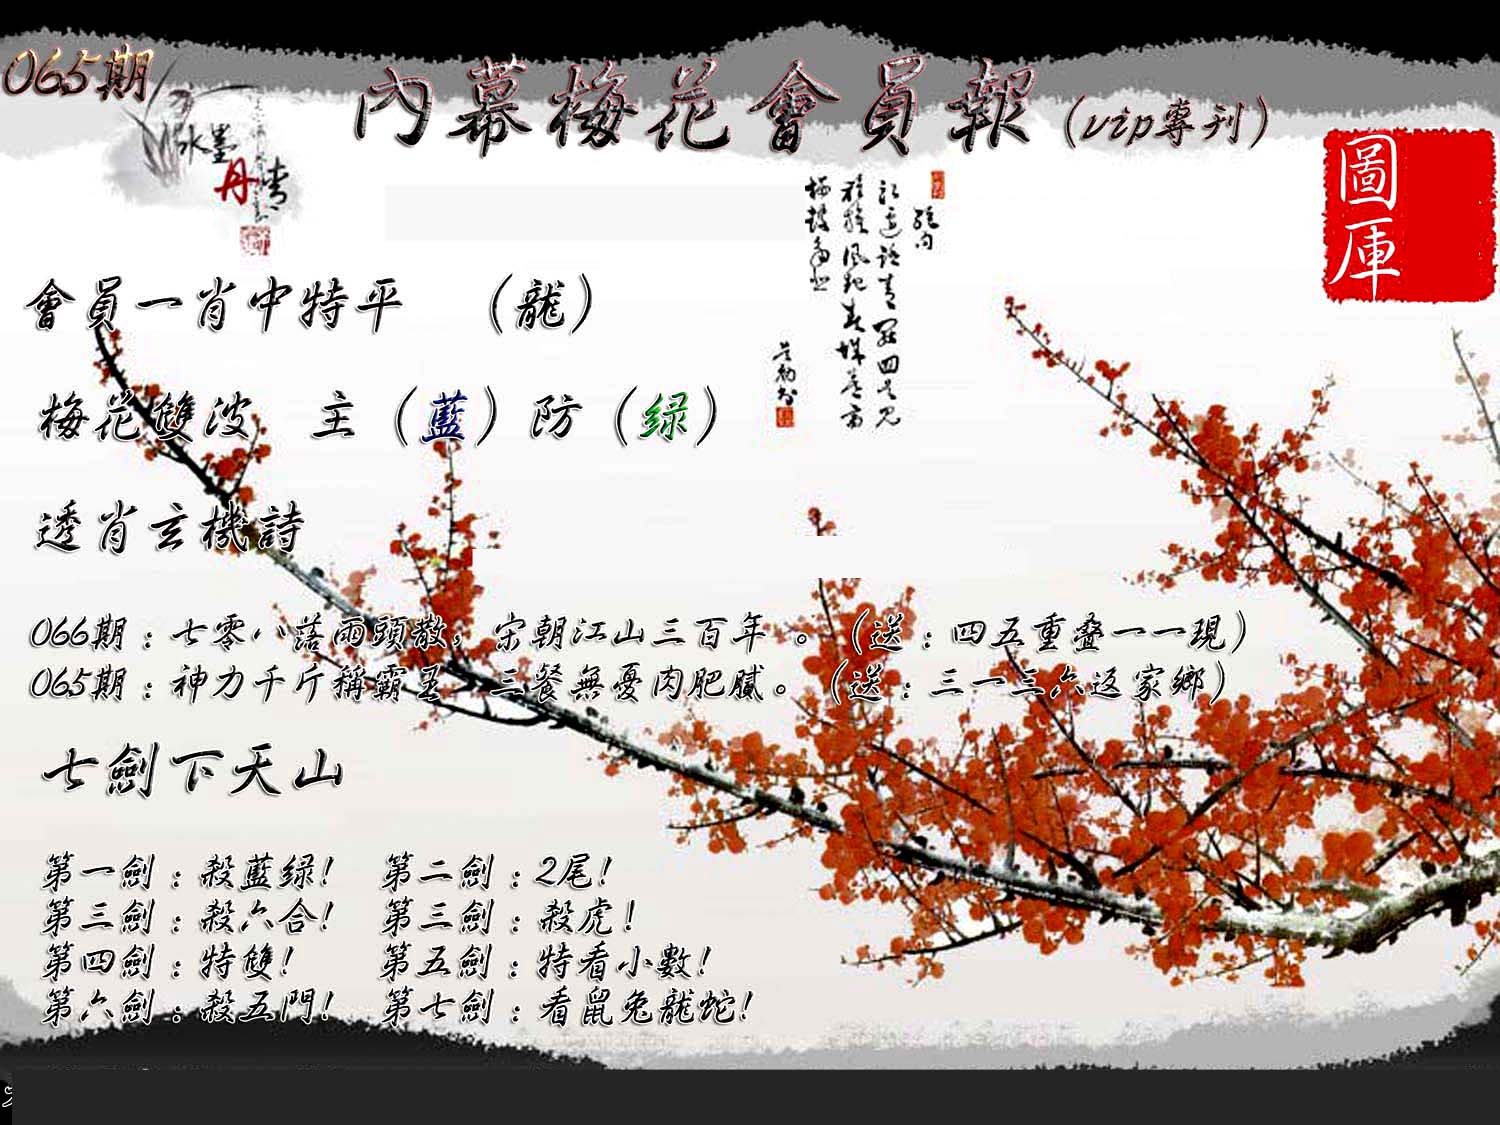 065期
內幕梅花會員報（vip專刊）
水墨
丹青
圖庫
會員一肖中特平 （龍）
梅花雙波 主（藍）防（绿）
透肖玄機詩
066期：七零八落雨頭散，宋朝江山三百年。（送：四五重叠一一現）
065期：神力千斤稱霸王，三餐無憂肉肥膩。（送：三一三六返家鄉）
七劍下天山
第一劍：殺藍绿! 第二劍：2尾!
第三劍：殺六合! 第三劍：殺虎!
第四劍：特雙! 第五劍：特看小數!
第六劍：殺五門! 第七劍：看鼠兔龍蛇!